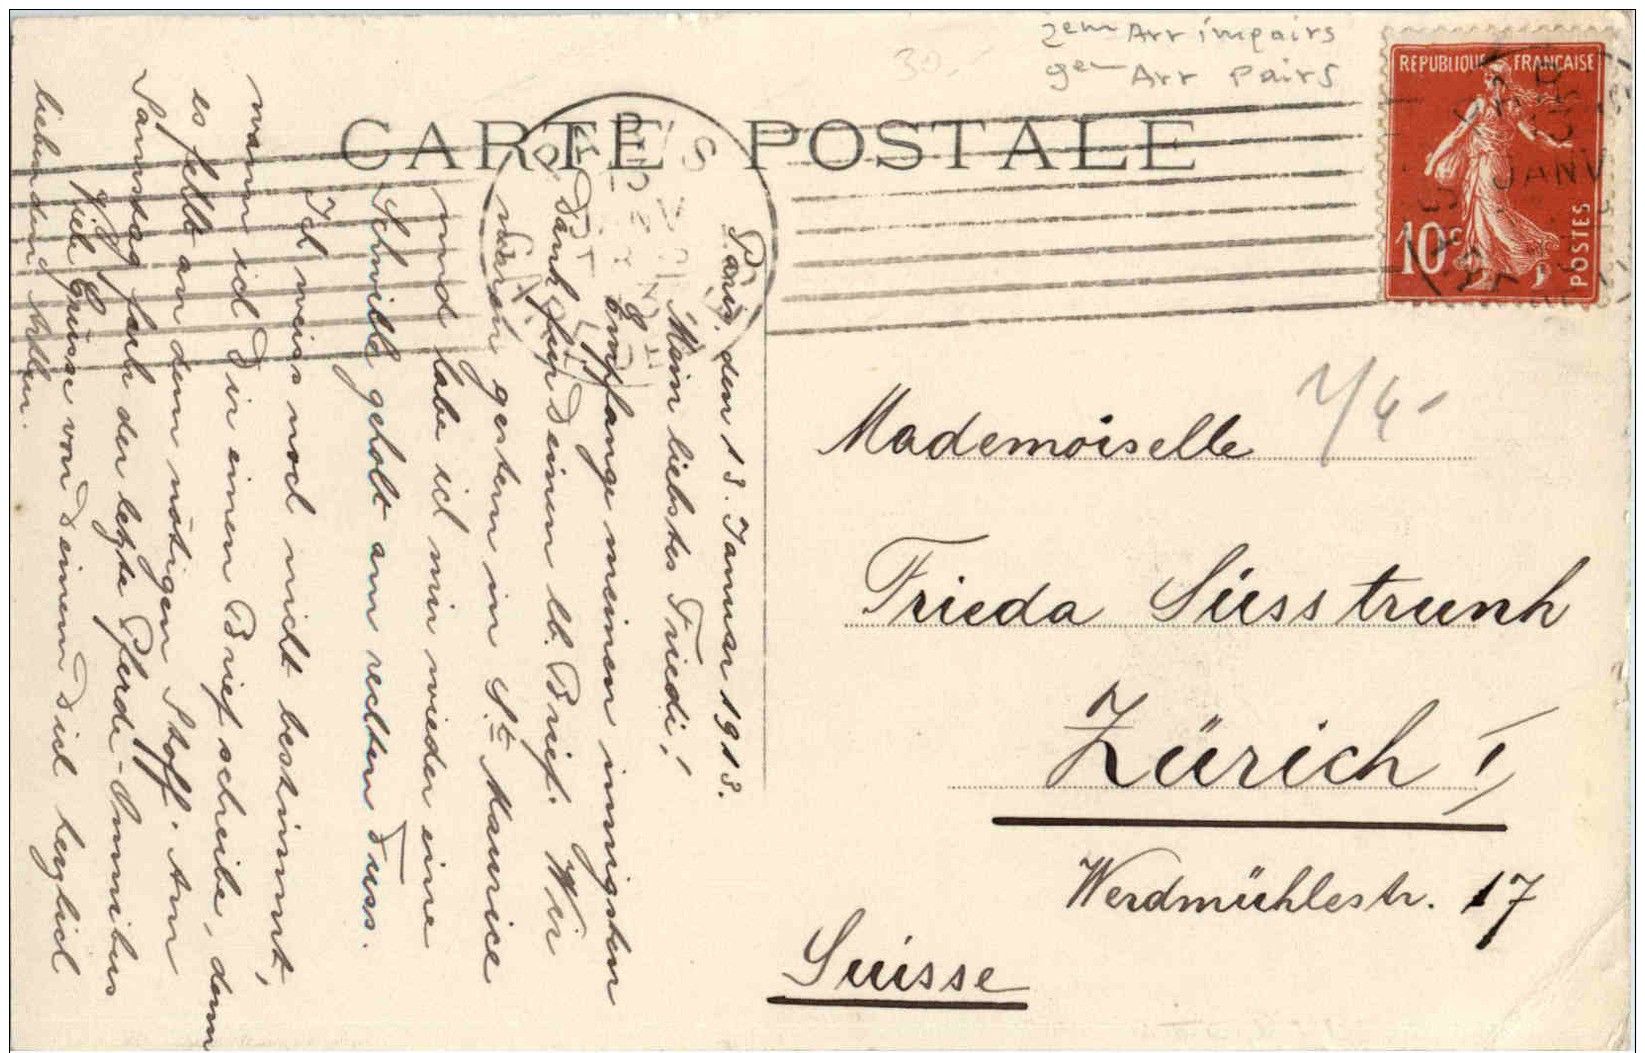 2em Arr impairs
9em Arr Pairs
30.-
CARTE POSTALE
REPUBLIQUE FRANÇAISE
10c
POSTES
JANV
Paris, den 13. Januar 1913.
Mein liebstes Friedi!
Empfange meinen innigsten
Dank für Deinen lb. Brief. Wir
waren gestern in St. Maurice
und habe ich mir wieder eine
Schwiele geholt am rechten Fuss.
Ich weiss noch nicht bestimmt,
wann ich Dir einen Brief schreibe, denn
es fehlt an dem nötigen Stoff. Am
Samstag fuhr der letzte Pferde-Omnibus
Viele Grüsse von Deinem Dich herzlich
liebenden
Mademoiselle
Frieda Süsstrunk
Zürich I
Werdmühlestr. 17
Suisse